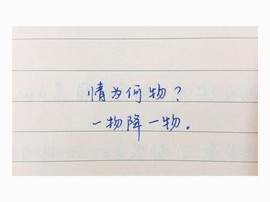 情为何物？
一物降一物。